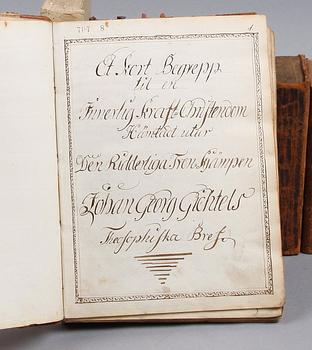 707 8°
1.
Et kort Begrepp
til en
Invertig Kraft-Christendom
Hämtad utur
Den Ridderliga Troskjämpen
Johan Georg Gichtels
Theosophiska Bref.